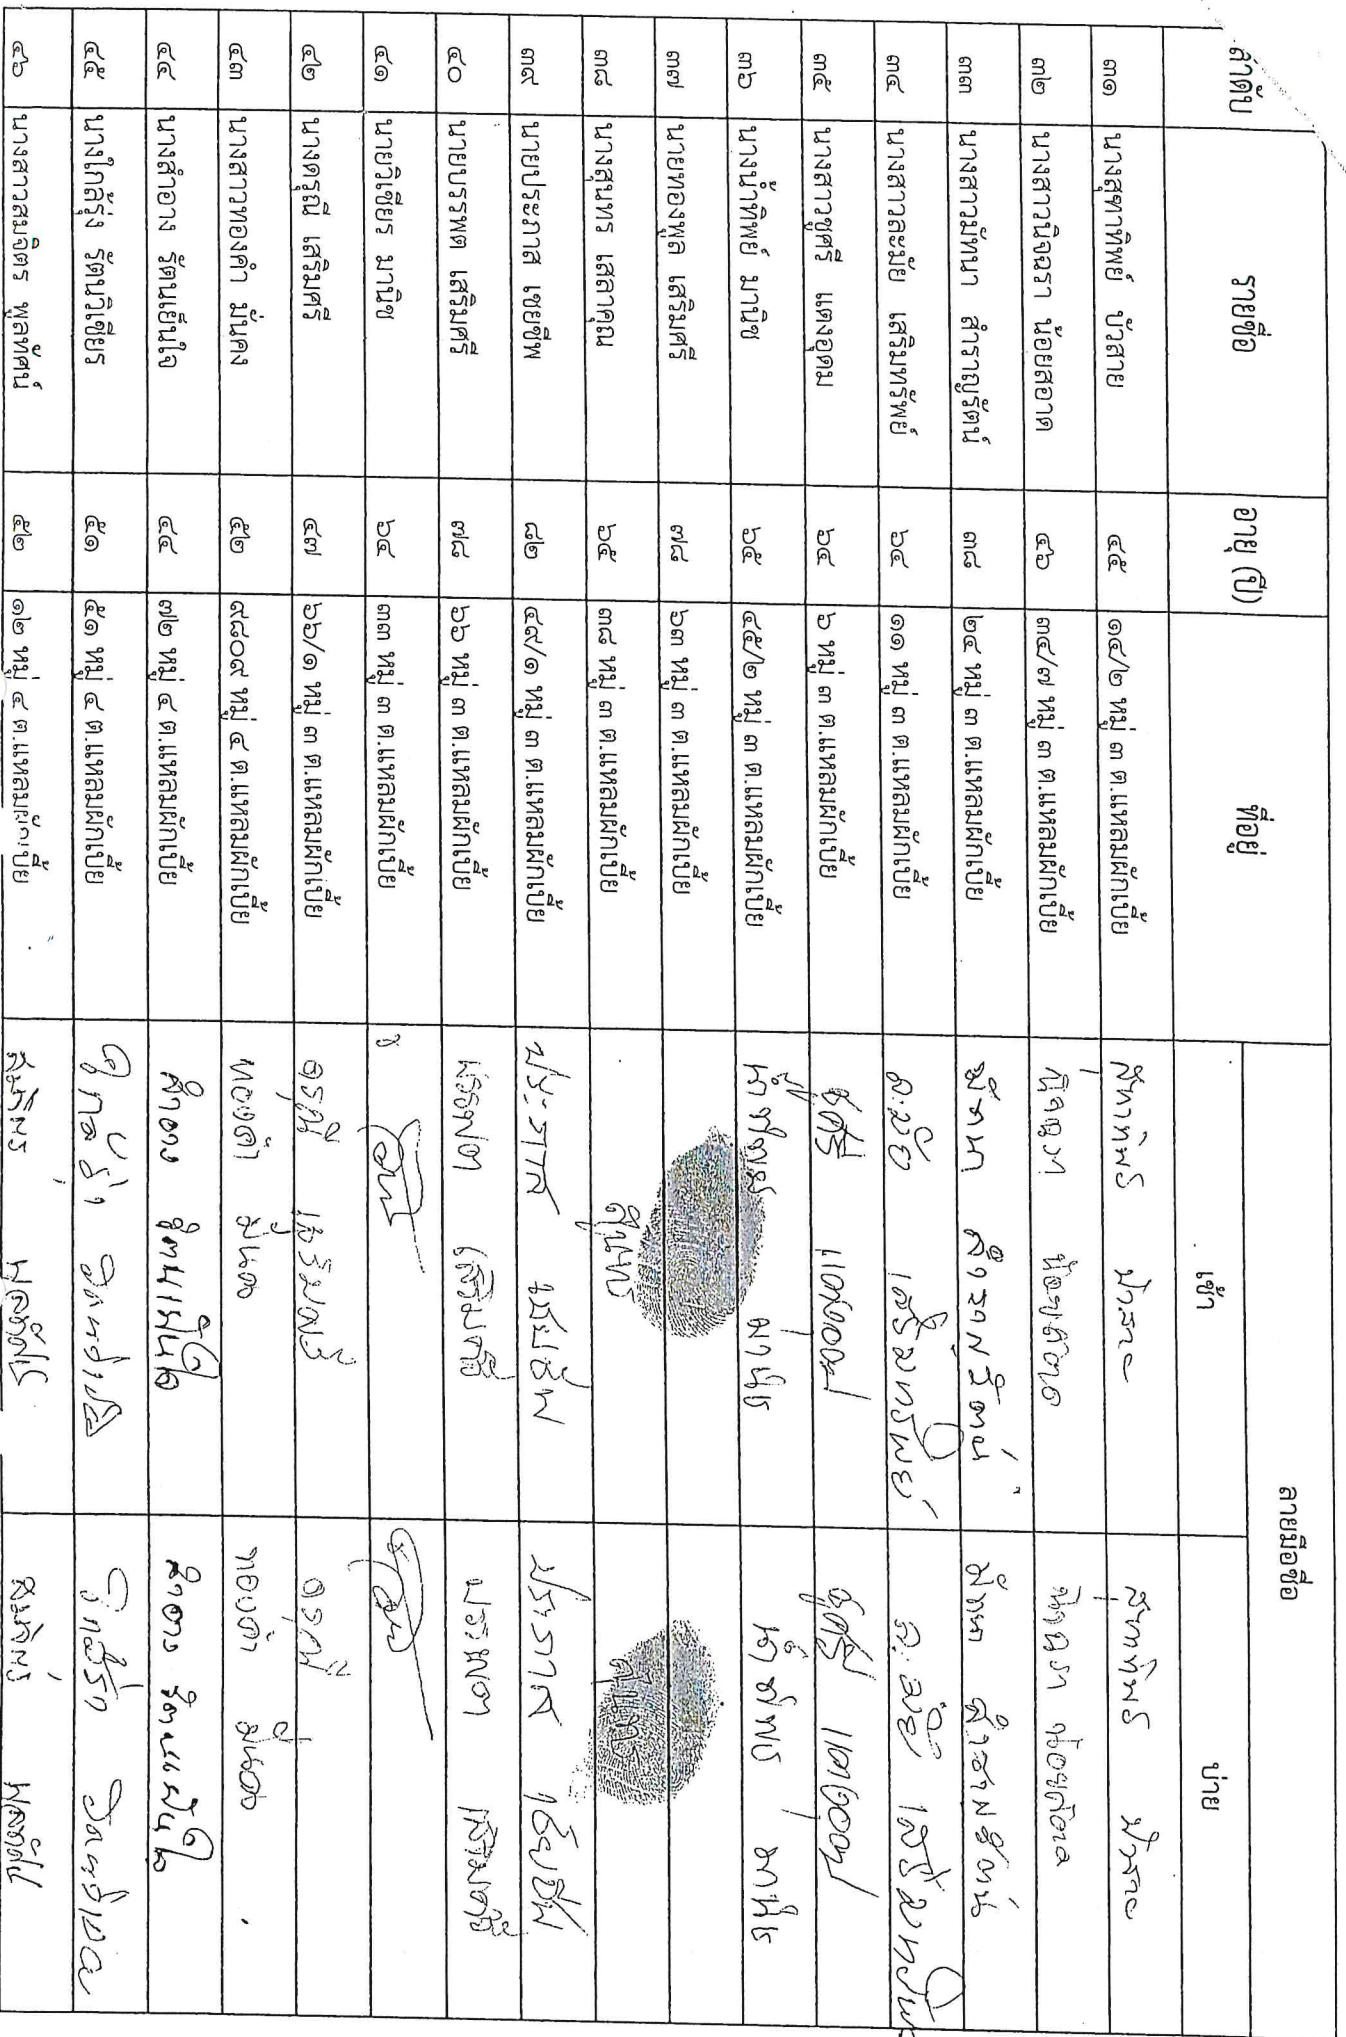 ลำดับ รายชื่อ อายุ (ปี) ที่อยู่ ลายมือชื่อ
เช้า บ่าย
๓๑ นางสุทาทิพย์ บัวสาย ๔๕ ๑๔/๒ หมู่ ๓ ต.แหลมผักเบี้ย
๓๒ นางสาวนิจฉรา น้อยสอาด ๔๖ ๓๔/๗ หมู่ ๓ ต.แหลมผักเบี้ย
๓๓ นางสาวมัทนา สำราญรัตน์ ๓๘ ๒๔ หมู่ ๓ ต.แหลมผักเบี้ย มัทนา สำราญรัตน์ มัทนา
๓๔ นางสาวละมัย เสริมทรัพย์ ๖๔ ๑๑ หมู่ ๓ ต.แหลมผักเบี้ย ละมัย เสริมทรัพย์ ละมัย
๓๕ นางสาวชูศรี แดงอุดม ๖๔ ๖ หมู่ ๓ ต.แหลมผักเบี้ย ชูศรี ชูศรี
๓๖ นางน้ำทิพย์ มานิช ๖๕ ๔๕/๒ หมู่ ๓ ต.แหลมผักเบี้ย น้ำทิพย์ มานิช
๓๗ นายทองพูล เสริมศรี ๗๘ ๖๓ หมู่ ๓ ต.แหลมผักเบี้ย
๓๘ นางสุนทร เสลาคุณ ๖๕ ๓๘ หมู่ ๓ ต.แหลมผักเบี้ย สุนทร
๓๙ นายประภาส เชยชีพ ๘๒ ๔๙/๑ หมู่ ๓ ต.แหลมผักเบี้ย ประภาส เชยชีพ ประภาส เชยชีพ
๔๐ นายบรรพต เสริมศรี ๗๘ ๖๖ หมู่ ๓ ต.แหลมผักเบี้ย บรรพต เสริมศรี บรรพต เสริมศรี
๔๑ นายวิเชียร มานิช ๖๔ ๓๓ หมู่ ๓ ต.แหลมผักเบี้ย
๔๒ นางดรุณี เสริมศรี ๔๗ ๖๖/๑ หมู่ ๓ ต.แหลมผักเบี้ย ดรุณี เสริมศรี ดรุณี
๔๓ นางสาวทองคำ มั่นคง ๕๒ ๙๘๐๙ หมู่ ๔ ต.แหลมผักเบี้ย ทองคำ มั่นคง ทองคำ มั่นคง
๔๔ นางสำอาง รัตนเย็นใจ ๔๔ ๗๒ หมู่ ๔ ต.แหลมผักเบี้ย สำอาง รัตนเย็นใจ สำอาง รัตนเย็นใจ
๔๕ นางใกล้รุ่ง รัตนวิเชียร ๕๑ ๕๑ หมู่ ๔ ต.แหลมผักเบี้ย
๔๖ นางสาวสมจิตร พูลทัศน์ ๕๒ ๑๒ หมู่ ๔ ต.แหลมผักเบี้ย